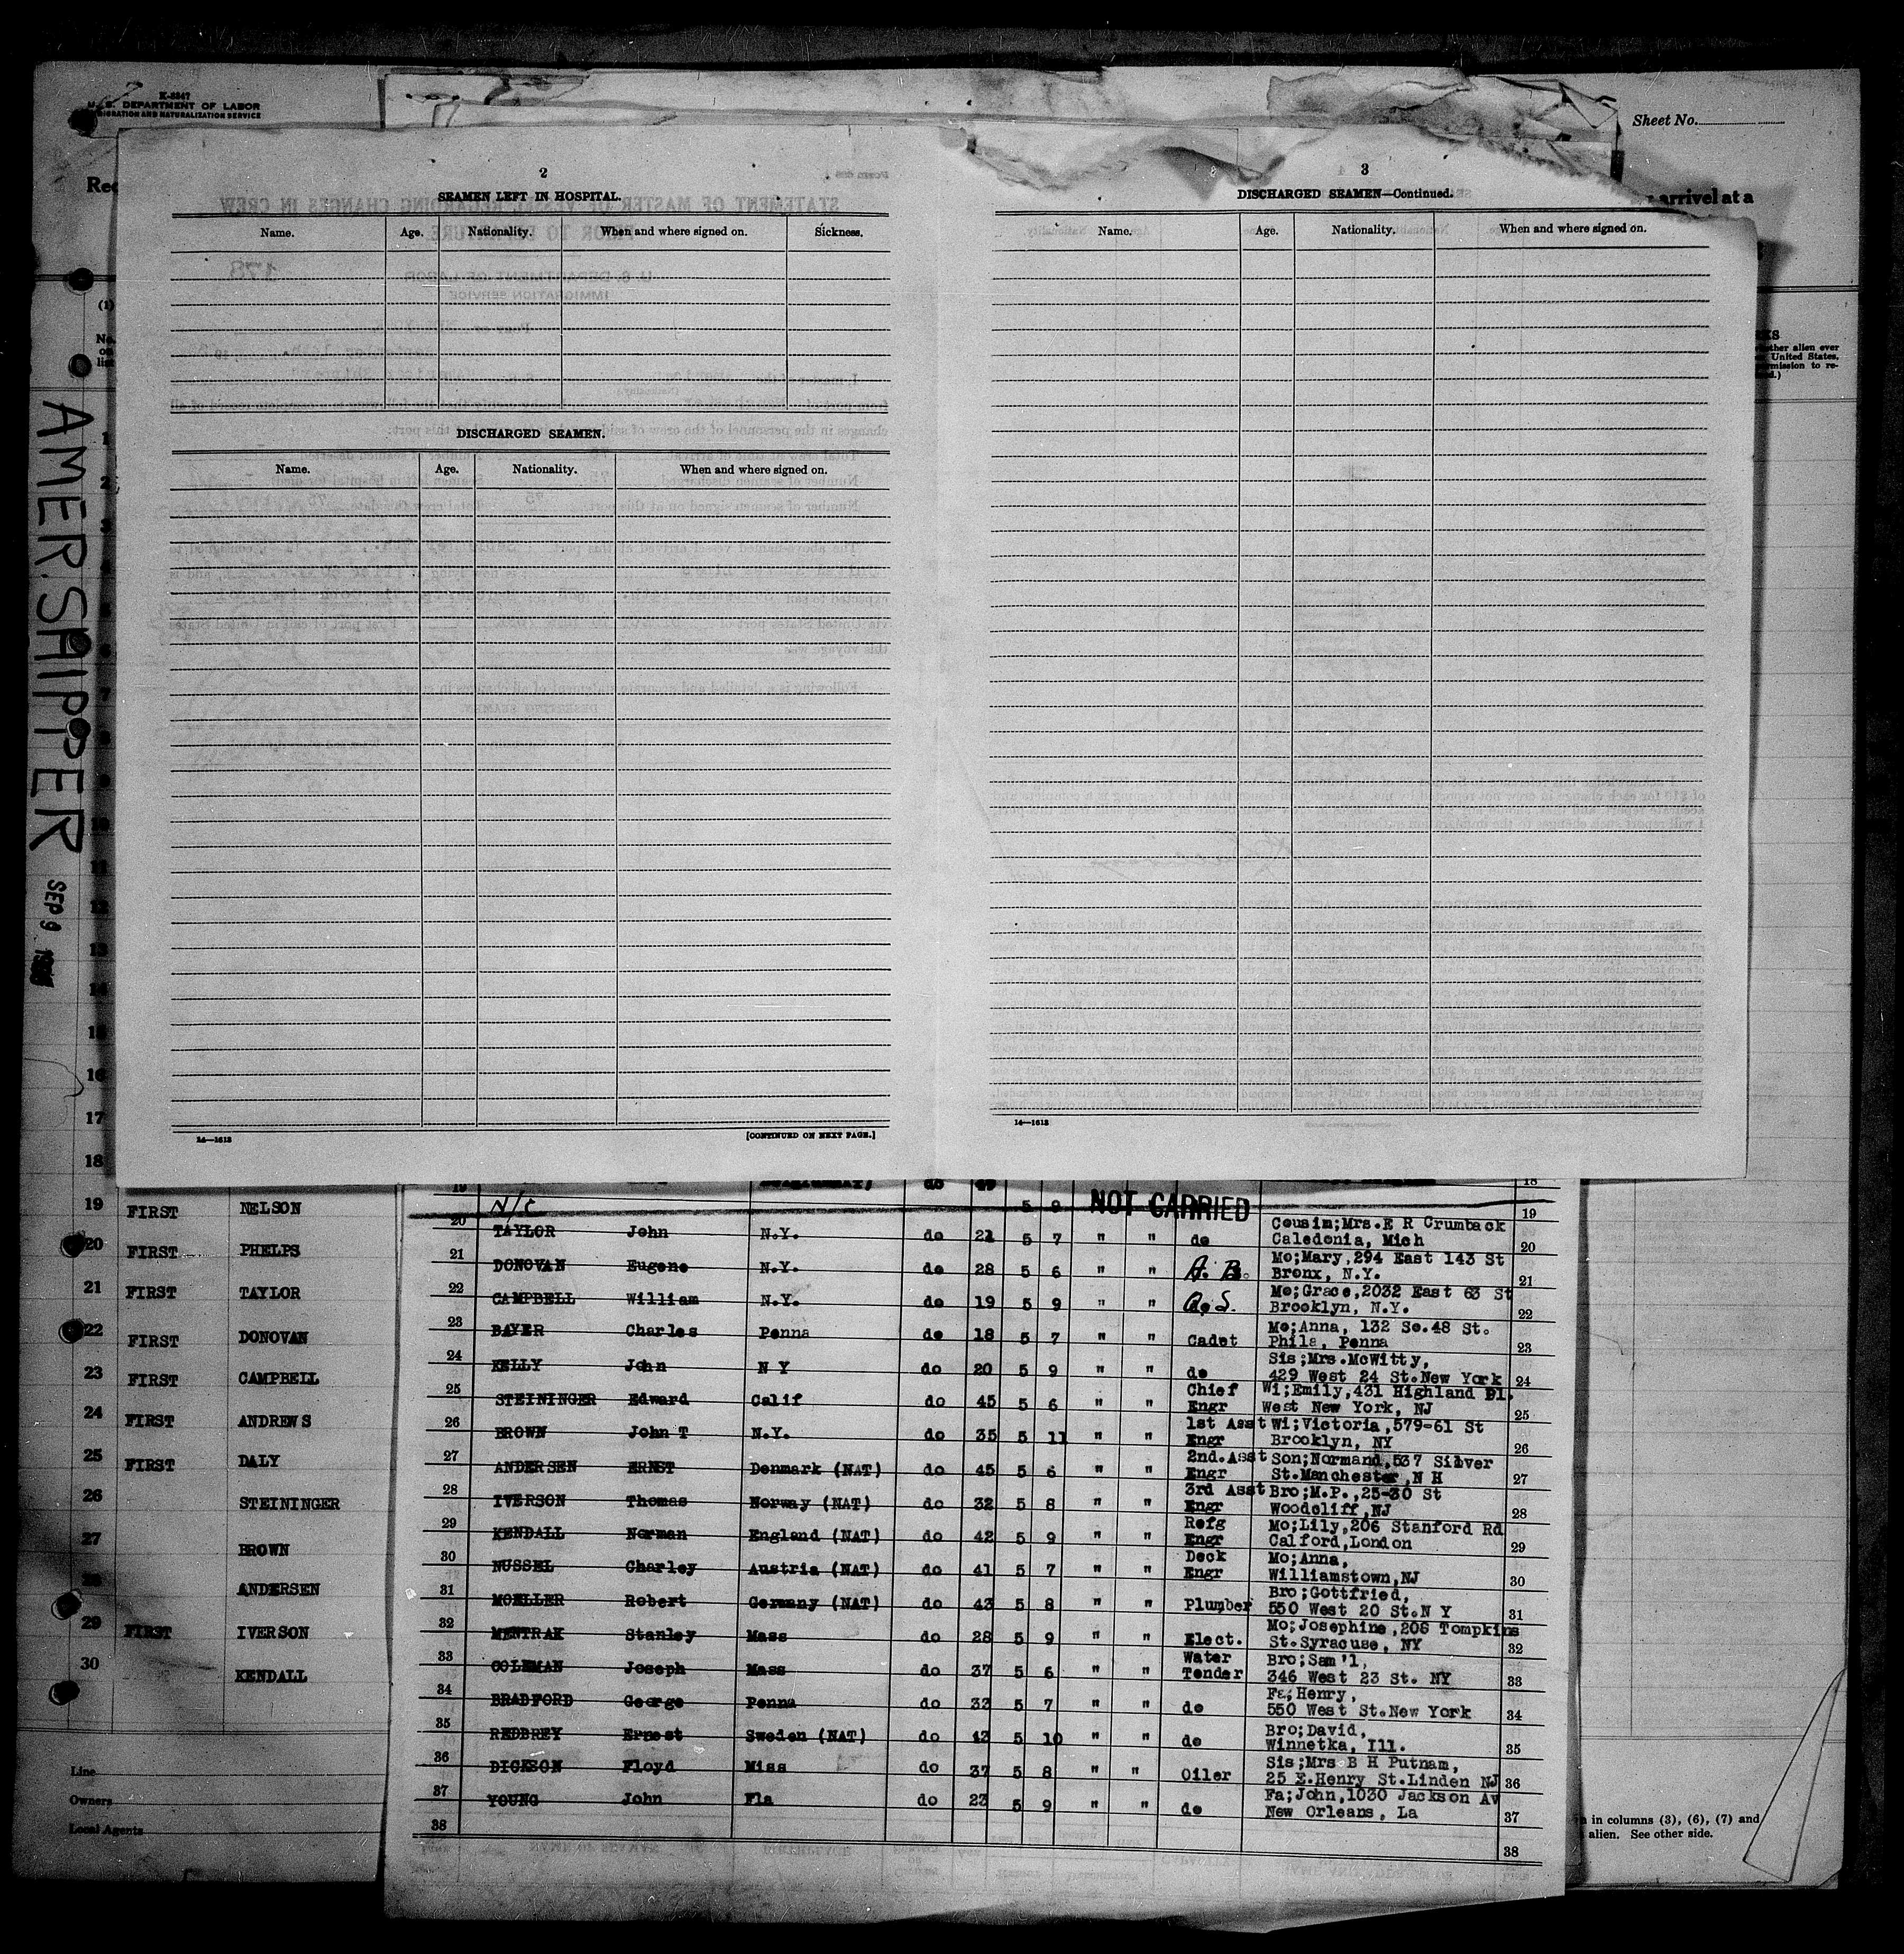 K-8847
U. S. DEPARTMENT OF LABOR
IMMIGRATION AND NATURALIZATION SERVICE
Sheet No.
arrival at a
AMER. SHIPPER SEP 9
2
SEAMEN LEFT IN HOSPITAL.
Name. Age. Nationality. When and where signed on. Sickness.
DISCHARGED SEAMEN.
Name. Age. Nationality. When and where signed on.
14—1613 [CONTINUED ON NEXT PAGE.]
3
DISCHARGED SEAMEN—Continued.
Name. Age. Nationality. When and where signed on.
14—1613
(1)
No. on list
ether alien ever
United States,
rmission to re-
1
2
3
4
5
6
7
8
9
10
11
12
13
14
15
16
17
18
19 FIRST NELSON
20 FIRST PHELPS
21 FIRST TAYLOR
22 FIRST DONOVAN
23 FIRST CAMPBELL
24 FIRST ANDREWS
25 FIRST DALY
26 STEININGER
27 BROWN
28 ANDERSEN
29 FIRST IVERSON
30 KENDALL
Line
Owners
Local Agents
18
19 N/C 5 9 NOT CARRIED 19
20 TAYLOR John N.Y. do 21 5 7 " " do Cousin;Mrs.E R Crumback
Caledonia, Mich 20
21 DONOVAN Eugene N.Y. do 28 5 6 " " A. B. Mo;Mary,294 East 143 St
Bronx, N.Y. 21
22 CAMPBELL William N.Y. do 19 5 9 " " O.S. Mo;Grace,2032 East 63 St
Brooklyn, N.Y. 22
23 BAYER Charles Penna do 18 5 7 " " Cadet Mo;Anna, 132 So.48 St.
Phila, Penna 23
24 KELLY John N Y do 20 5 9 " " do Sis;Mrs.McWitty,
429 West 24 St.New York 24
25 STEININGER Edward Calif do 45 5 6 " " Chief Engr Wi;Emily,431 Highland Pl.
West New York, NJ 25
26 BROWN John T N.Y. do 35 5 11 " " 1st Asst Engr Wi;Victoria,579-61 St
Brooklyn, NY 26
27 ANDERSEN ERNST Denmark (NAT) do 45 5 6 " " 2nd.Asst Engr Son;Normand,537 Silver
St.Manchester,N H 27
28 IVERSON Thomas Norway (NAT) do 32 5 8 " " 3rd Asst Engr Bro;M.P.,25-30 St
Woodcliff,NJ 28
29 KENDALL Norman England (NAT) do 42 5 9 " " Refg Engr Mo;Lily,206 Stanford Rd
Calford,London 29
30 NUSSEL Charley Austria (NAT) do 41 5 7 " " Deck Engr Mo;Anna,
Williamstown,NJ 30
31 MOELLER Robert Germany (NAT) do 43 5 8 " " Plumber Bro;Gottfried,
550 West 20 St.N Y 31
32 MENTRAK Stanley Mass do 28 5 9 " " Elect. Mo;Josephine,206 Tompkins
St.Syracuse, NY 32
33 COLEMAN Joseph Mass do 37 5 6 " " Water Tender Bro;Sam'l,
346 West 23 St. NY 33
34 BRADFORD George Penna do 32 5 7 " " do Fa;Henry,
550 West St.New York 34
35 REDBREY Ernest Sweden (NAT) do 43 5 10 " " do Bro;David,
Winnetka, Ill. 35
36 DICKSON Floyd Miss do 37 5 8 " " Oiler Sis;Mrs B H Putnam,
25 E.Henry St.Linden NJ 36
37 YOUNG John Fla do 23 5 9 " " do Fa;John,1030 Jackson Av
New Orleans, La 37
38 38
in columns (3), (6), (7) and
alien. See other side.